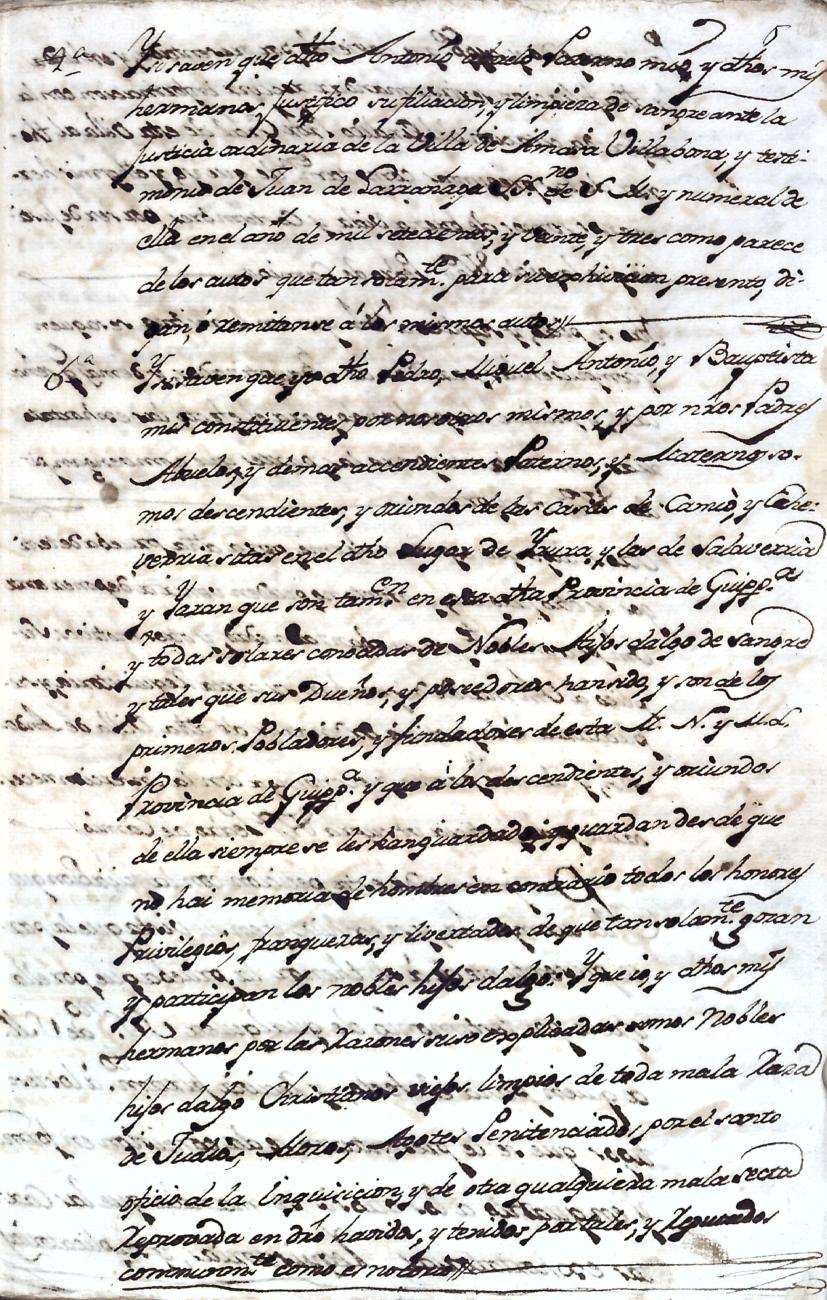 5
4ª Y si saven que dho Antonio Abuelo Paterno mio, y dhos mis
hermanos, justificó su filiacion, y limpieza de sangre ante la
Justicia ordinaria de la Villa de Amasa Villabona, y testi-
monio de Juan de Larrañaga SSno de S. M., y numeral de
ella en el año de mil setecientos, y veinte, y tres como parece
de los autos que tan solamte para su exhivicion presento, di-
gan, ó remitanse á los mismos autos
6ª Y si saven que yo dho Pedro, Miguel Antonio, y Bauptista
mis constituentes, por nosotros mismos, y por nros Padres
Abuelos, y demas accendientes Paternos, y Maternos so-
mos descendientes, y oriundos de las Casas de Camio, y
verria sitas en el dho Lugar de Yrura, y las de Salaverria
y Yaran que son tamen en esta dha Provincia de Guippª
y todas solares conocidas de Nobles Hijos dalgo de sangre
y tales que sus Dueños, y poseedores han sido, y son de los
primeros Pobladores, y fundadores de esta M. N. y M. L.
Provincia de Guippª y que á los descendientes, y oriundos
de ella siempre se les han guardado, y guardan desde que
no hai memoria de hombres en contrario todos los honores
Privilegios, franquezas, y livertades de que tan solamte gozan
y participan los nobles hijos dalgo: Y que io, y dhos mis
hermanos por las Razones suso explicadas somos Nobles
hijos dalgo Christianos viejos limpios de toda mala Raza
de Judios, Moros, Agotes Penitenciados, por el santo
oficio de la Inquisicion, y de otra qualquiera mala secta
Reprovada en dro havidos, y tenidos por tales, y Reputados
comunmte como es notorio